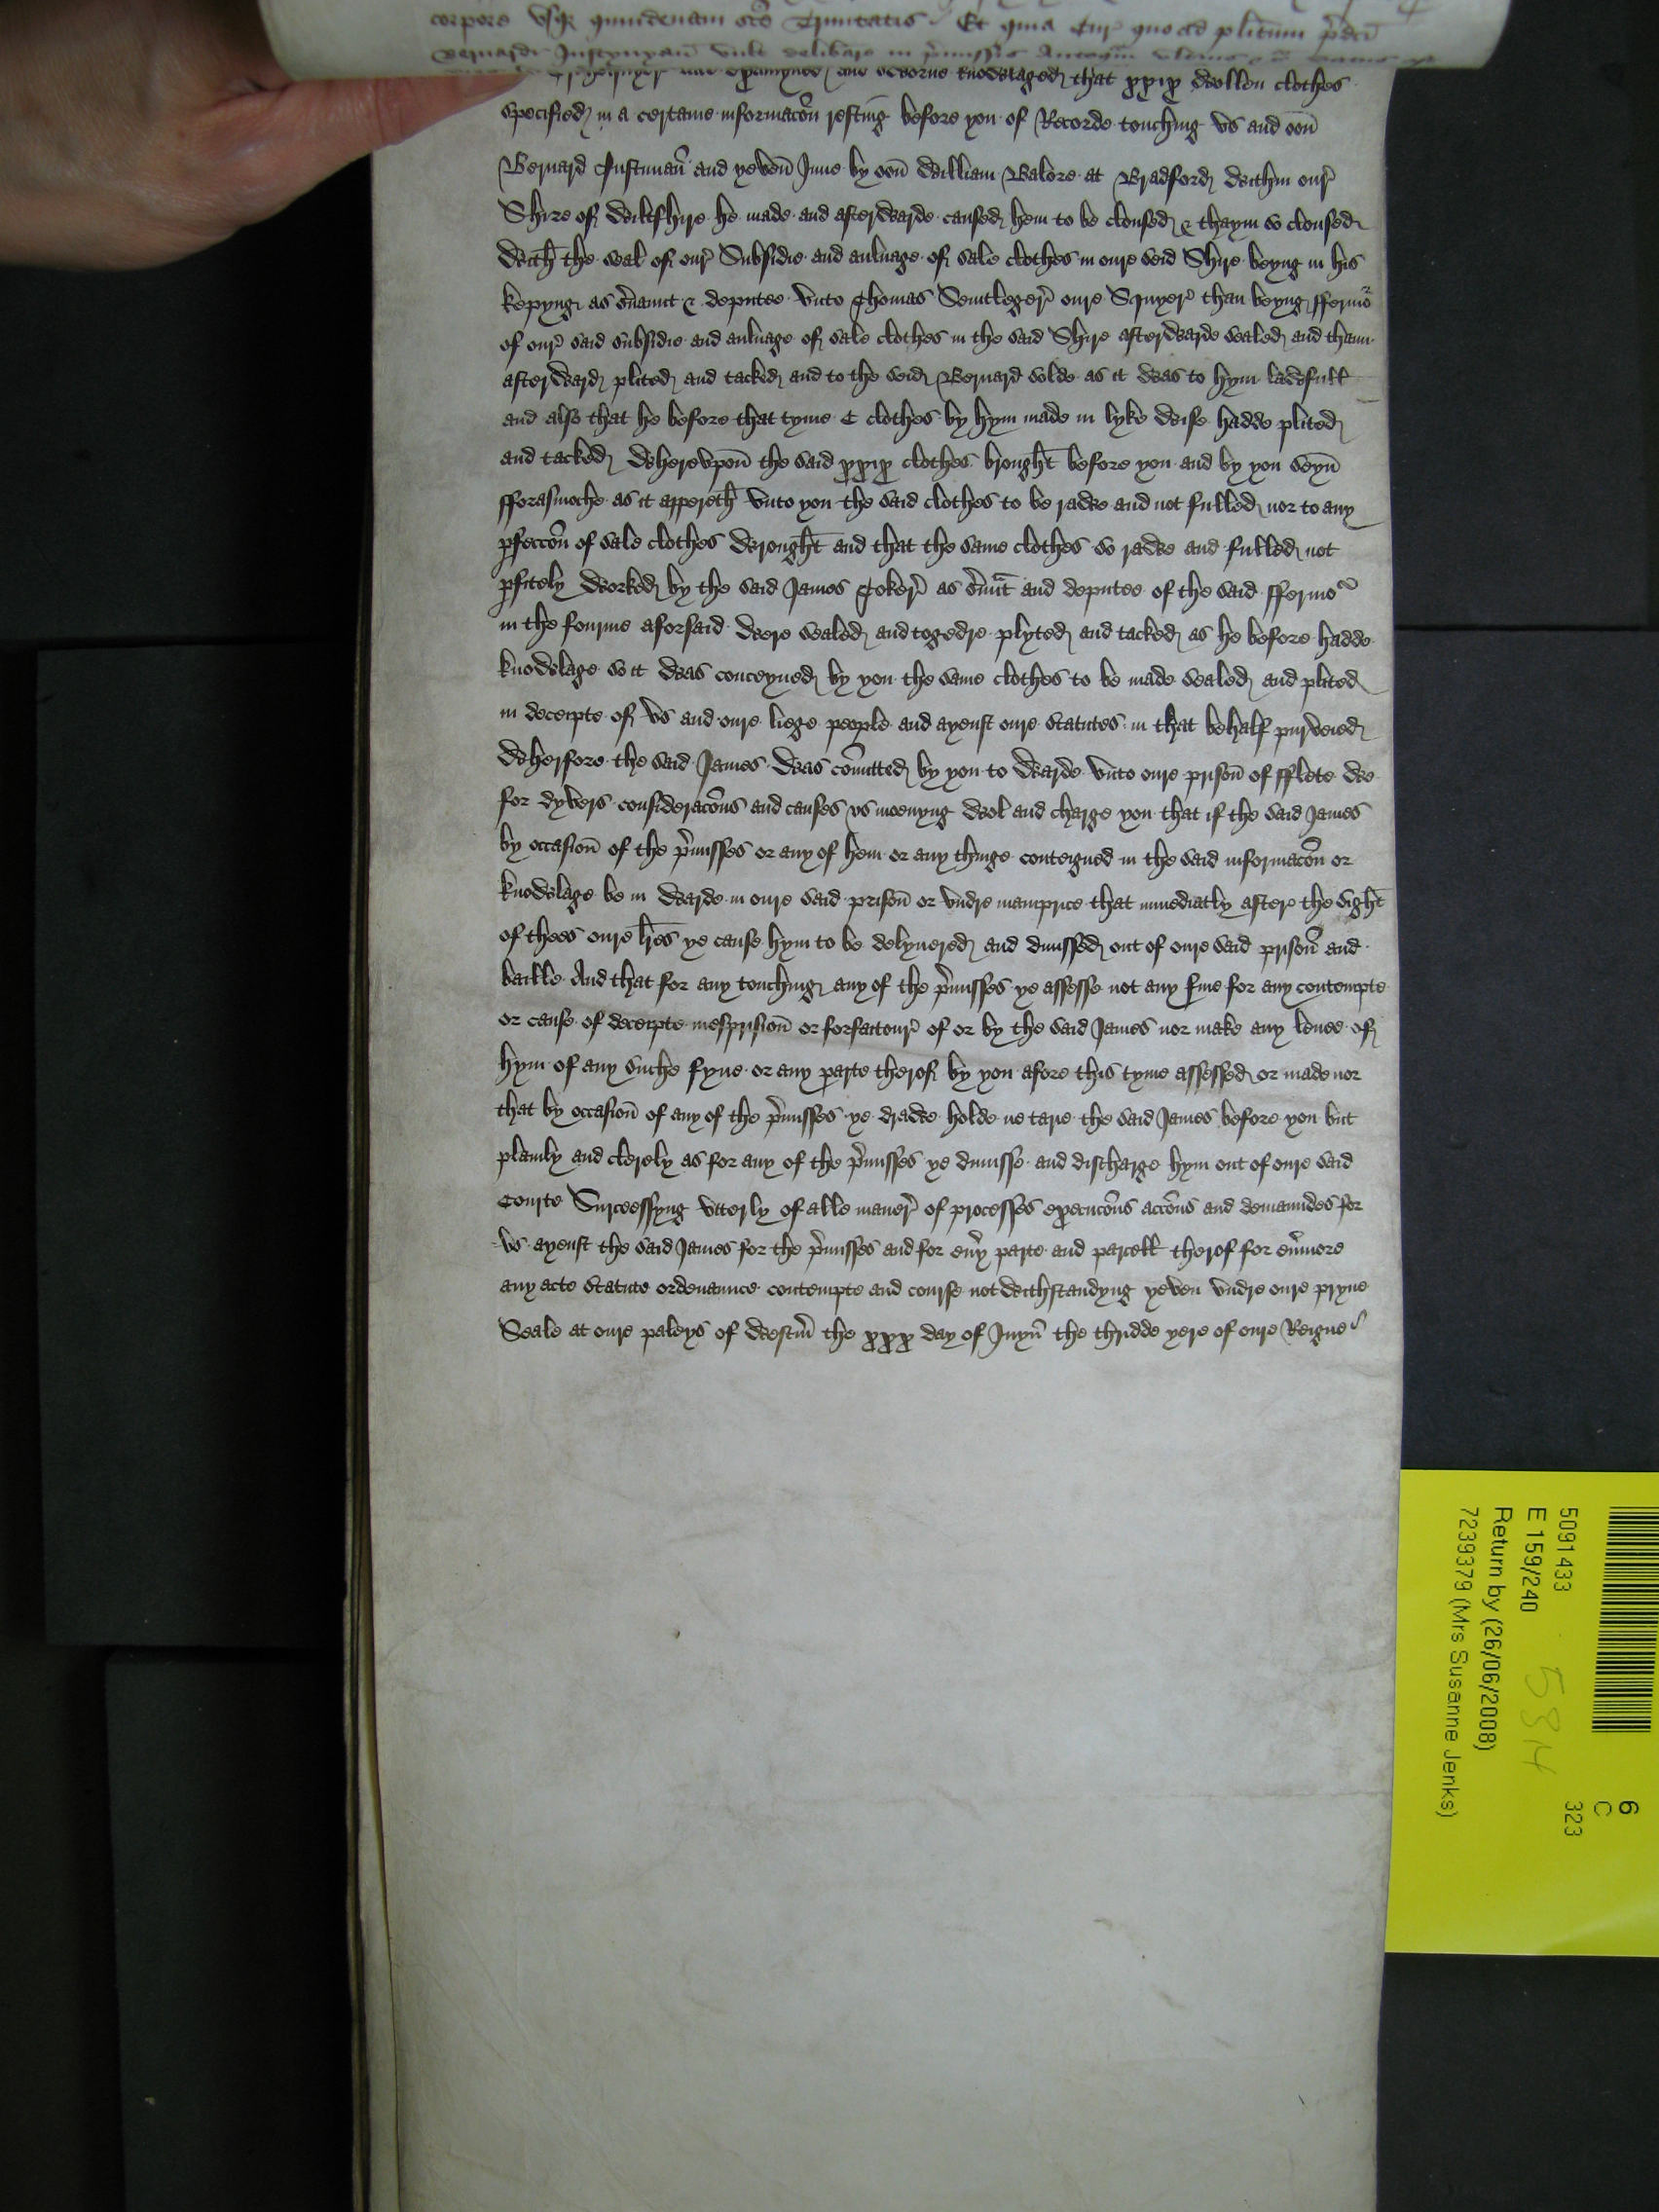 corpore usq quindenam sce Trinitatis Et quia Cur quo ad plitum pdci
Bernardi Justynyan vult delibare in pmissis Antequam
and examyned and sworne knowlaged that xxix wollen clothes
specified in a certaine informacon resting before you of Recorde touching us and oon
Bernard Justinian and yeven Inne by oon William Balore at Bradford within our
Shire of Wiltshire he made and afterwarde caused hem to be clonsed & thaym so clonsed
With the seal of our Subsidie and aulnage of sale clothes in oure seid Shire beyng in his
kepyng as svaunt & deputee unto Thomas Sentleger oure Squyer than beyng ffermo
of our said subsidie and aulnage of sale clothes in the said Shire afterwarde sealed and tham
afterward plited and tacked and to the seid Bernard solde as it was to hym lawfull
and also that he before that tyme C clothes by hym made in lyke wise hadde plited
and tacked Wherevpon the said xxix clothes brought before you and by you seyn
fforasmoche as it appereth unto you the said clothes to be rawe and not fulled nor to any
pfeccon of sale clothes wrought and that the same clothes so rawe and fulled not
pfitely worked by the said James Toker as svunt and deputee of the said ffermo
in the fourme aforsaid were sealed and togedre plyted and tacked as he before hadde
knowlage so it was conceyued by you the same clothes to be made sealed and plited
in deceipte of us and oure liege people and ayenst oure statutes in that behalf purveied
Wherfore the said James was comitted by you to warde unto oure prison of fflete we
for dyvers consideracons and causes us moevyng wol and charge you that if the said James
by occasion of the pmisses or any of hem or any thinge conteigned in the said informacon or
knowlage be in warde in oure said prison or undre mainprice that immediatly after the sight
of thees oure lres ye cause hym to be delyuered and dmissed out of oure said prison and
baille And that for any touching any of the pmisses ye assesse not any fine for any contempte
or cause of deceipte mesprision or forfaitour of or by the said James nor make any levee of
hym of any suche fyne or any parte therof by you afore this tyme assessed or made nor
that by occasion of any of the pmisses ye drawe holde ne tarie the said James before you but
plainly and clerely as for any of the pmisses ye dmisse and discharge hym out of oure said
Courte Surcessyng utterly of alle maner of processes execucons accons and demaundes for
us ayenst the said James for the pmisses and for evy parte and parcell therof for evmore
any acte statute ordenaunce contempte and course not withstandyng yeven undre oure pryue
Seale at oure paleys of Westm the xxx day of Juyn the thridde yere of oure Reigne
5091433
E 159/240
Return by (26/06/2008)
7239379 (Mrs Susanne Jenks)
6
C
323